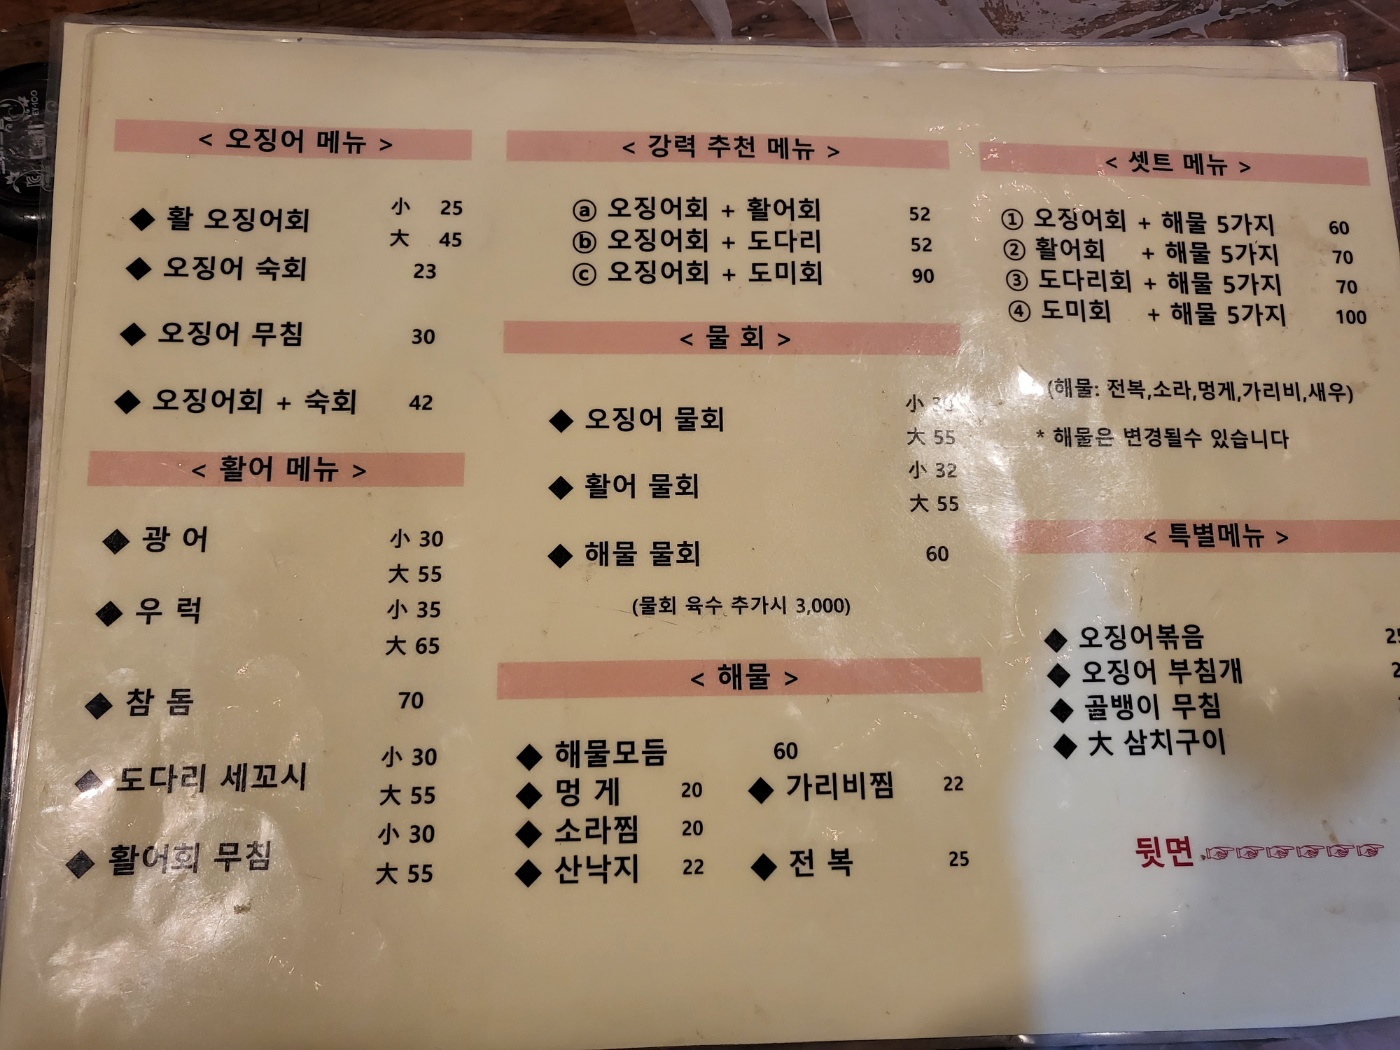 < 오징어 메뉴 >
◆ 활 오징어회 小 25
大 45
◆ 오징어 숙회 23
◆ 오징어 무침 30
◆ 오징어회 + 숙회 42
< 활어 메뉴 >
◆ 광 어 小 30
大 55
◆ 우 럭 小 35
大 65
◆ 참 돔 70
◆ 도다리 세꼬시 小 30
大 55
◆ 활어회 무침 小 30
大 55
< 강력 추천 메뉴 >
ⓐ 오징어회 + 활어회 52
ⓑ 오징어회 + 도다리 52
ⓒ 오징어회 + 도미회 90
< 물 회 >
◆ 오징어 물회 小
大 55
◆ 활어 물회 小 32
大 55
◆ 해물 물회 60
(물회 육수 추가시 3,000)
< 해물 >
◆ 해물모듬 60
◆ 멍 게 20 ◆ 가리비찜 22
◆ 소라찜 20
◆ 산낙지 22 ◆ 전 복 25
< 셋트 메뉴 >
① 오징어회 + 해물 5가지 60
② 활어회 + 해물 5가지 70
③ 도다리회 + 해물 5가지 70
④ 도미회 + 해물 5가지 100
(해물: 전복,소라,멍게,가리비,새우)
* 해물은 변경될수 있습니다
< 특별메뉴 >
◆ 오징어볶음
◆ 오징어 부침개
◆ 골뱅이 무침
◆ 大 삼치구이
뒷면 ☞☞☞☞☞☞